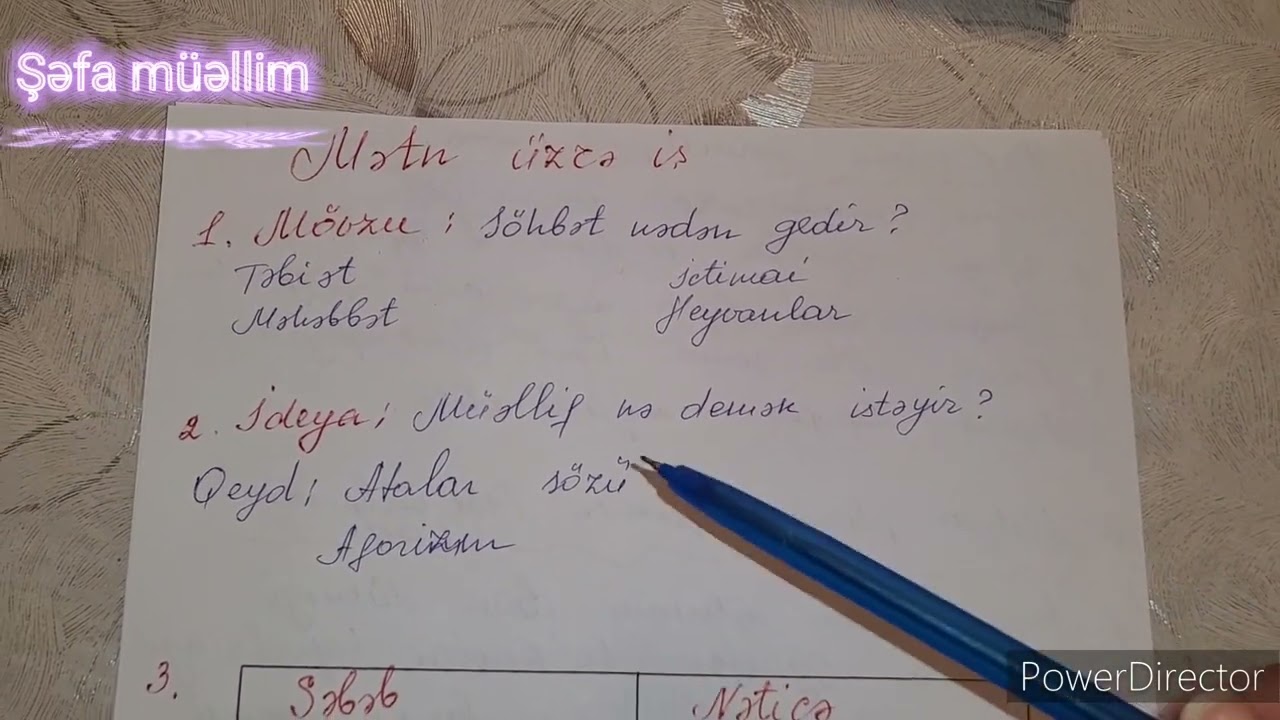 Şəfa müəllim
Mətn üzrə iş
1. Mövzu : Söhbət nədən gedir?
Təbiət İctimai
Məhəbbət Heyvanlar
2. İdeya ; Müəllif nə demək istəyir?
Qeyd ; Atalar sözü
Aforizm
3. Səbəb Nəticə
PowerDirector